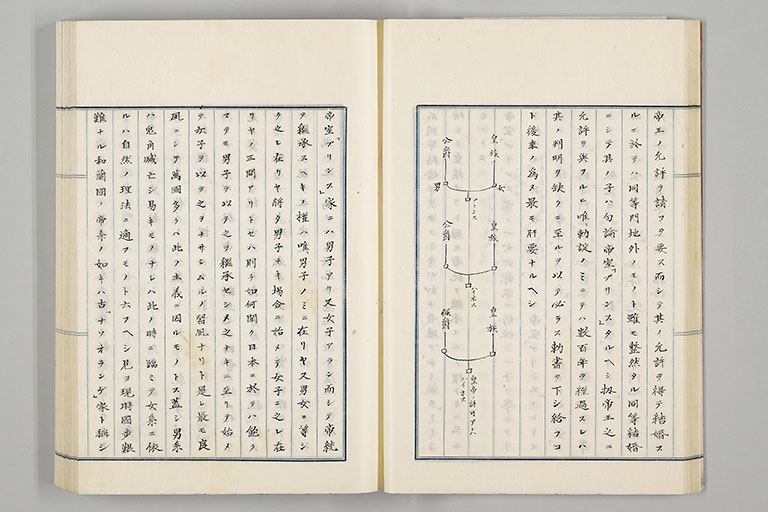 帝王ノ允許ヲ請フヲ要ス而シテ其ノ允許ヲ得テ結婚ス
ルニ於テハ同等門地外ノモノト雖モ整然タル同等結婚
ニシテ其ノ子ハ勿論帝室「プリンス」タルヘシ扨帝王之ニ
允許ヲ與フルニ唯勅諚ノミニテハ數百年ヲ經過スレハ
其ノ判明ヲ缺クニ至ルヲ以テ必ラス勅書ヲ下シ給フコ
ト後來ノ爲メ最モ肝要ナルヘシ
皇族
女
公爵
男
プリンス
皇族
公爵
ハイネス
皇族
侯爵
皇帝ノ許可アレハ
ハイネス
帝室「プリンス」家ニハ男子アリ又女子アラン而シテ帝統
ヲ繼承スヘキノ權ハ唯男子ノミニ在リヤ又男女ニ等シ
ク之レ在リヤ將タ男子ナキ場合ニ始メテ女子ニ之レ在
リヤノ三問アリトセハ則チ如何聞ク日本ニ於テハ飽ク
マテモ男子ヲ以テ之ヲ繼承セシメ之ナキニ至リ始メ
テ女子ヲ以テ之ヲナサシムルノ習風ナリト是レ最モ良
風ニシテ萬國多クハ此ノ主義ニ因ルモノトス蓋シ男系
ハ兎角滅亡シ易キモノナレハ此ノ時ニ臨ミテ女系ニ依
ルハ自然ノ理法ニ適フモノト云フヘシ見ヨ現時國步艱
難ナル和蘭國ノ帝系ノ如キハ古「ナツオランゲ」家ト稱シ